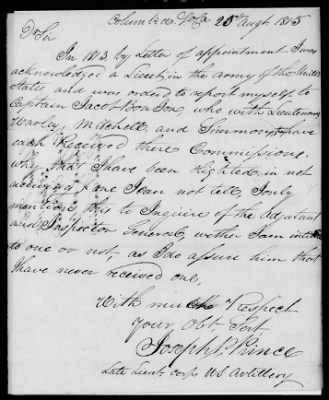 Columbia 20th Augt 1815
Sir
In 1813, by Letter of appointment I was
acknowledged a Lieut in the army of the United
States, and was ordered to report myself to
Captain Jacob who with Lieutenants
Mitchell, and Simmons have
each Received there Commissions.
why that I have been slighted, in not
receiving one I can not tell, I only
mention this to Inquire of the Adjutant
and Inspector General, wether I am intitled
to one or not, as I do assure him that
I have never received one,
With much Respect
Your Obt Sert
Joseph P. Prince
Late Lieut. corps U.S. Artillery